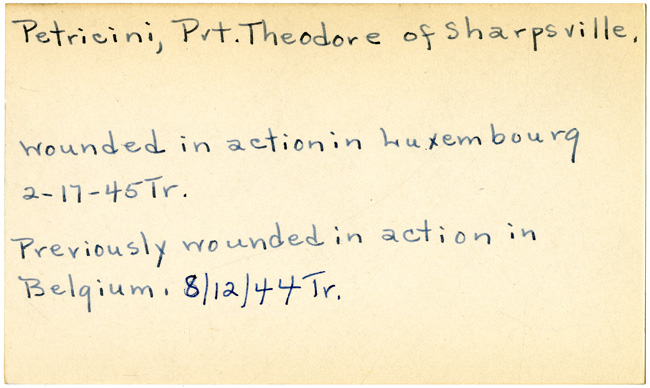 Petricini, Pvt. Theodore of Sharpsville.
wounded in action in Luxembourg
2-17-45 Tr.
Previously wounded in action in
Belgium. 8/12/44 Tr.